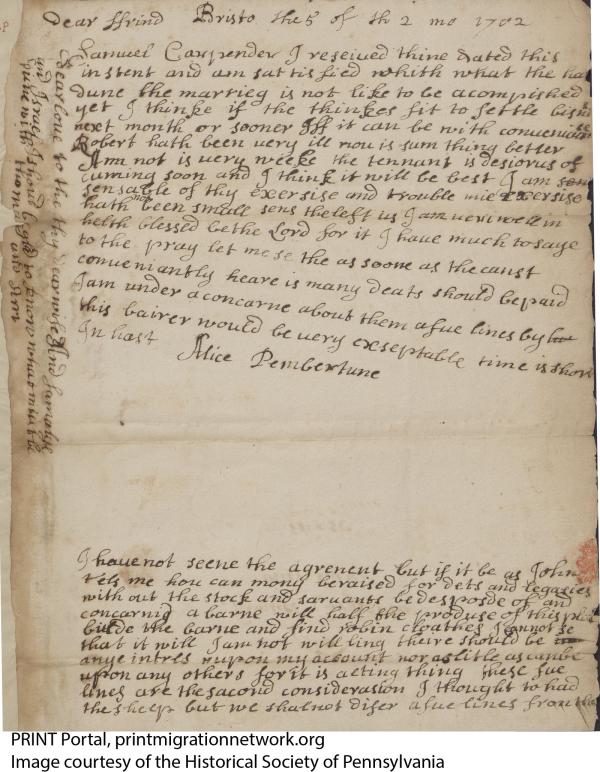 Dear ffrind Bristo the 5 of th 2 mo 1702
Samuel Carpender I reseived thine dated this
instent and am sattisfied whith what the ha
dune the marrieg is not like to be acomplished
yet I thinke if the thinkes fit to settle bisn
next month or sooner Iff it can be with conveniance
Robert hath been very ill nou is sum thing better
Ann not is very weeke the tennant is desiorus of
cuming soon and I think it will be best I am
sensable of thy exersise and trouble mie exersise
hath not been small sens the left us I am veri well in
helth blessed be the Lord for it I have much to saye
to the pray let me se the as soone as the canst
conveniantly heare is many deats should be paid
I am under a concarne about them a fue lines by
this bairer would be very exseptable time is short
In hast
Alice Pembertune
Deare loue to the thy dear wife And famalye
and Israell should be glad to know what
time with
thom and Am
I have not seene the agrement but if it be as John
tels me hou can mony be raised for dets and legasies
with out the stock and sarvants be desposde of and
concarnig a barne will half the produse of this
builde the barne and find robin cloathes I cannot se
that it will I am not will ling theire should be
anye intres upon my account nor as litle as can be
upon any others for it is a eting thing these fue
lines are the second consideration I thought to had
the sheep but we shal not difer a fue lines from the
PRINT Portal, printmigrationnetwork.org
Image courtesy of the Historical Society of Pennsylvania